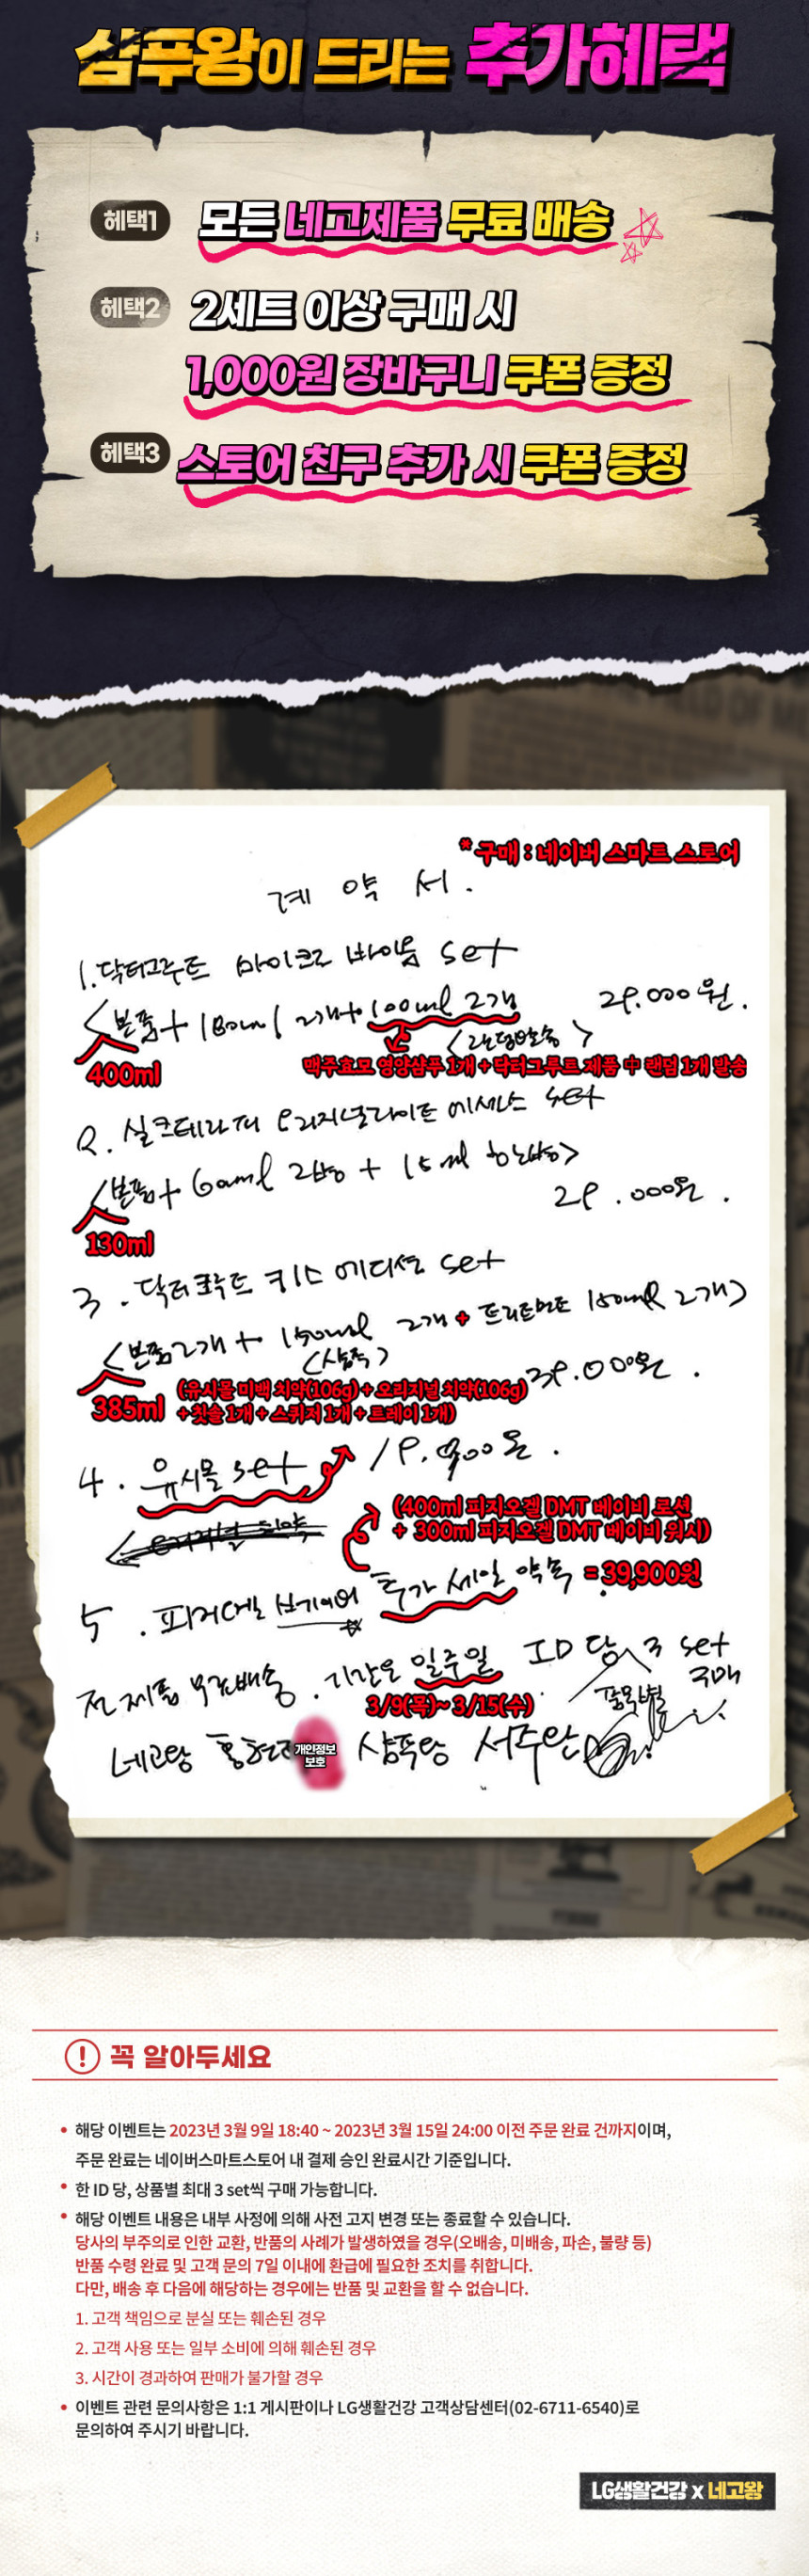 샴푸왕이 드리는 추가혜택
혜택1 모든 네고제품 무료 배송
혜택2 2세트 이상 구매 시
1,000원 장바구니 쿠폰 증정
혜택3 스토어 친구 추가 시 쿠폰 증정
* 구매 : 네이버 스마트 스토어
계 약 서.
1. 닥터그루트 마이크로 바이옴 set
<본품 + 180ml 2개 + 100ml 2개 29.000원.
<랜덤발송>
400ml 맥주효모 영양샴푸 1개 + 닥터그루트 제품 中 랜덤 1개 발송
2. 실크테라피 오리지널라이트 에세스 set
<본품 + 60ml 2병 + 15ml 한병>
29.000원.
130ml
3. 닥터그루트 키스 에디션 set
<본품 2개 + 150ml 2개 + 트리트먼트 150ml 2개>
385ml
39.000원.
(유시몰 미백 치약(106g) + 오리지널 치약(106g)
+ 칫솔 1개 + 스퀴저 1개 + 트레이 1개)
4. 유시몰 set 19.900원.
(400ml 피지오겔 DMT 베이비 로션
+ 300ml 피지오겔 DMT 베이비 워시)
5. 피지오겔 추가 세일 약속 = 39,900원
전 제품 무료배송. 기간은 일주일 ID 당 3 set
3/9(목)~3/15(수) 품목별 구매
네고왕 개인정보
보호 샴푸왕
꼭 알아두세요
• 해당 이벤트는 2023년 3월 9일 18:40 ~ 2023년 3월 15일 24:00 이전 주문 완료 건까지이며,
주문 완료는 네이버스마트스토어 내 결제 승인 완료시간 기준입니다.
• 한 ID 당, 상품별 최대 3 set씩 구매 가능합니다.
• 해당 이벤트 내용은 내부 사정에 의해 사전 고지 변경 또는 종료할 수 있습니다.
당사의 부주의로 인한 교환, 반품의 사례가 발생하였을 경우(오배송, 미배송, 파손, 불량 등)
반품 수령 완료 및 고객 문의 7일 이내에 환급에 필요한 조치를 취합니다.
다만, 배송 후 다음에 해당하는 경우에는 반품 및 교환을 할 수 없습니다.
1. 고객 책임으로 분실 또는 훼손된 경우
2. 고객 사용 또는 일부 소비에 의해 훼손된 경우
3. 시간이 경과하여 판매가 불가할 경우
• 이벤트 관련 문의사항은 1:1 게시판이나 LG생활건강 고객상담센터(02-6711-6540)로
문의하여 주시기 바랍니다.
LG생활건강 x 네고왕